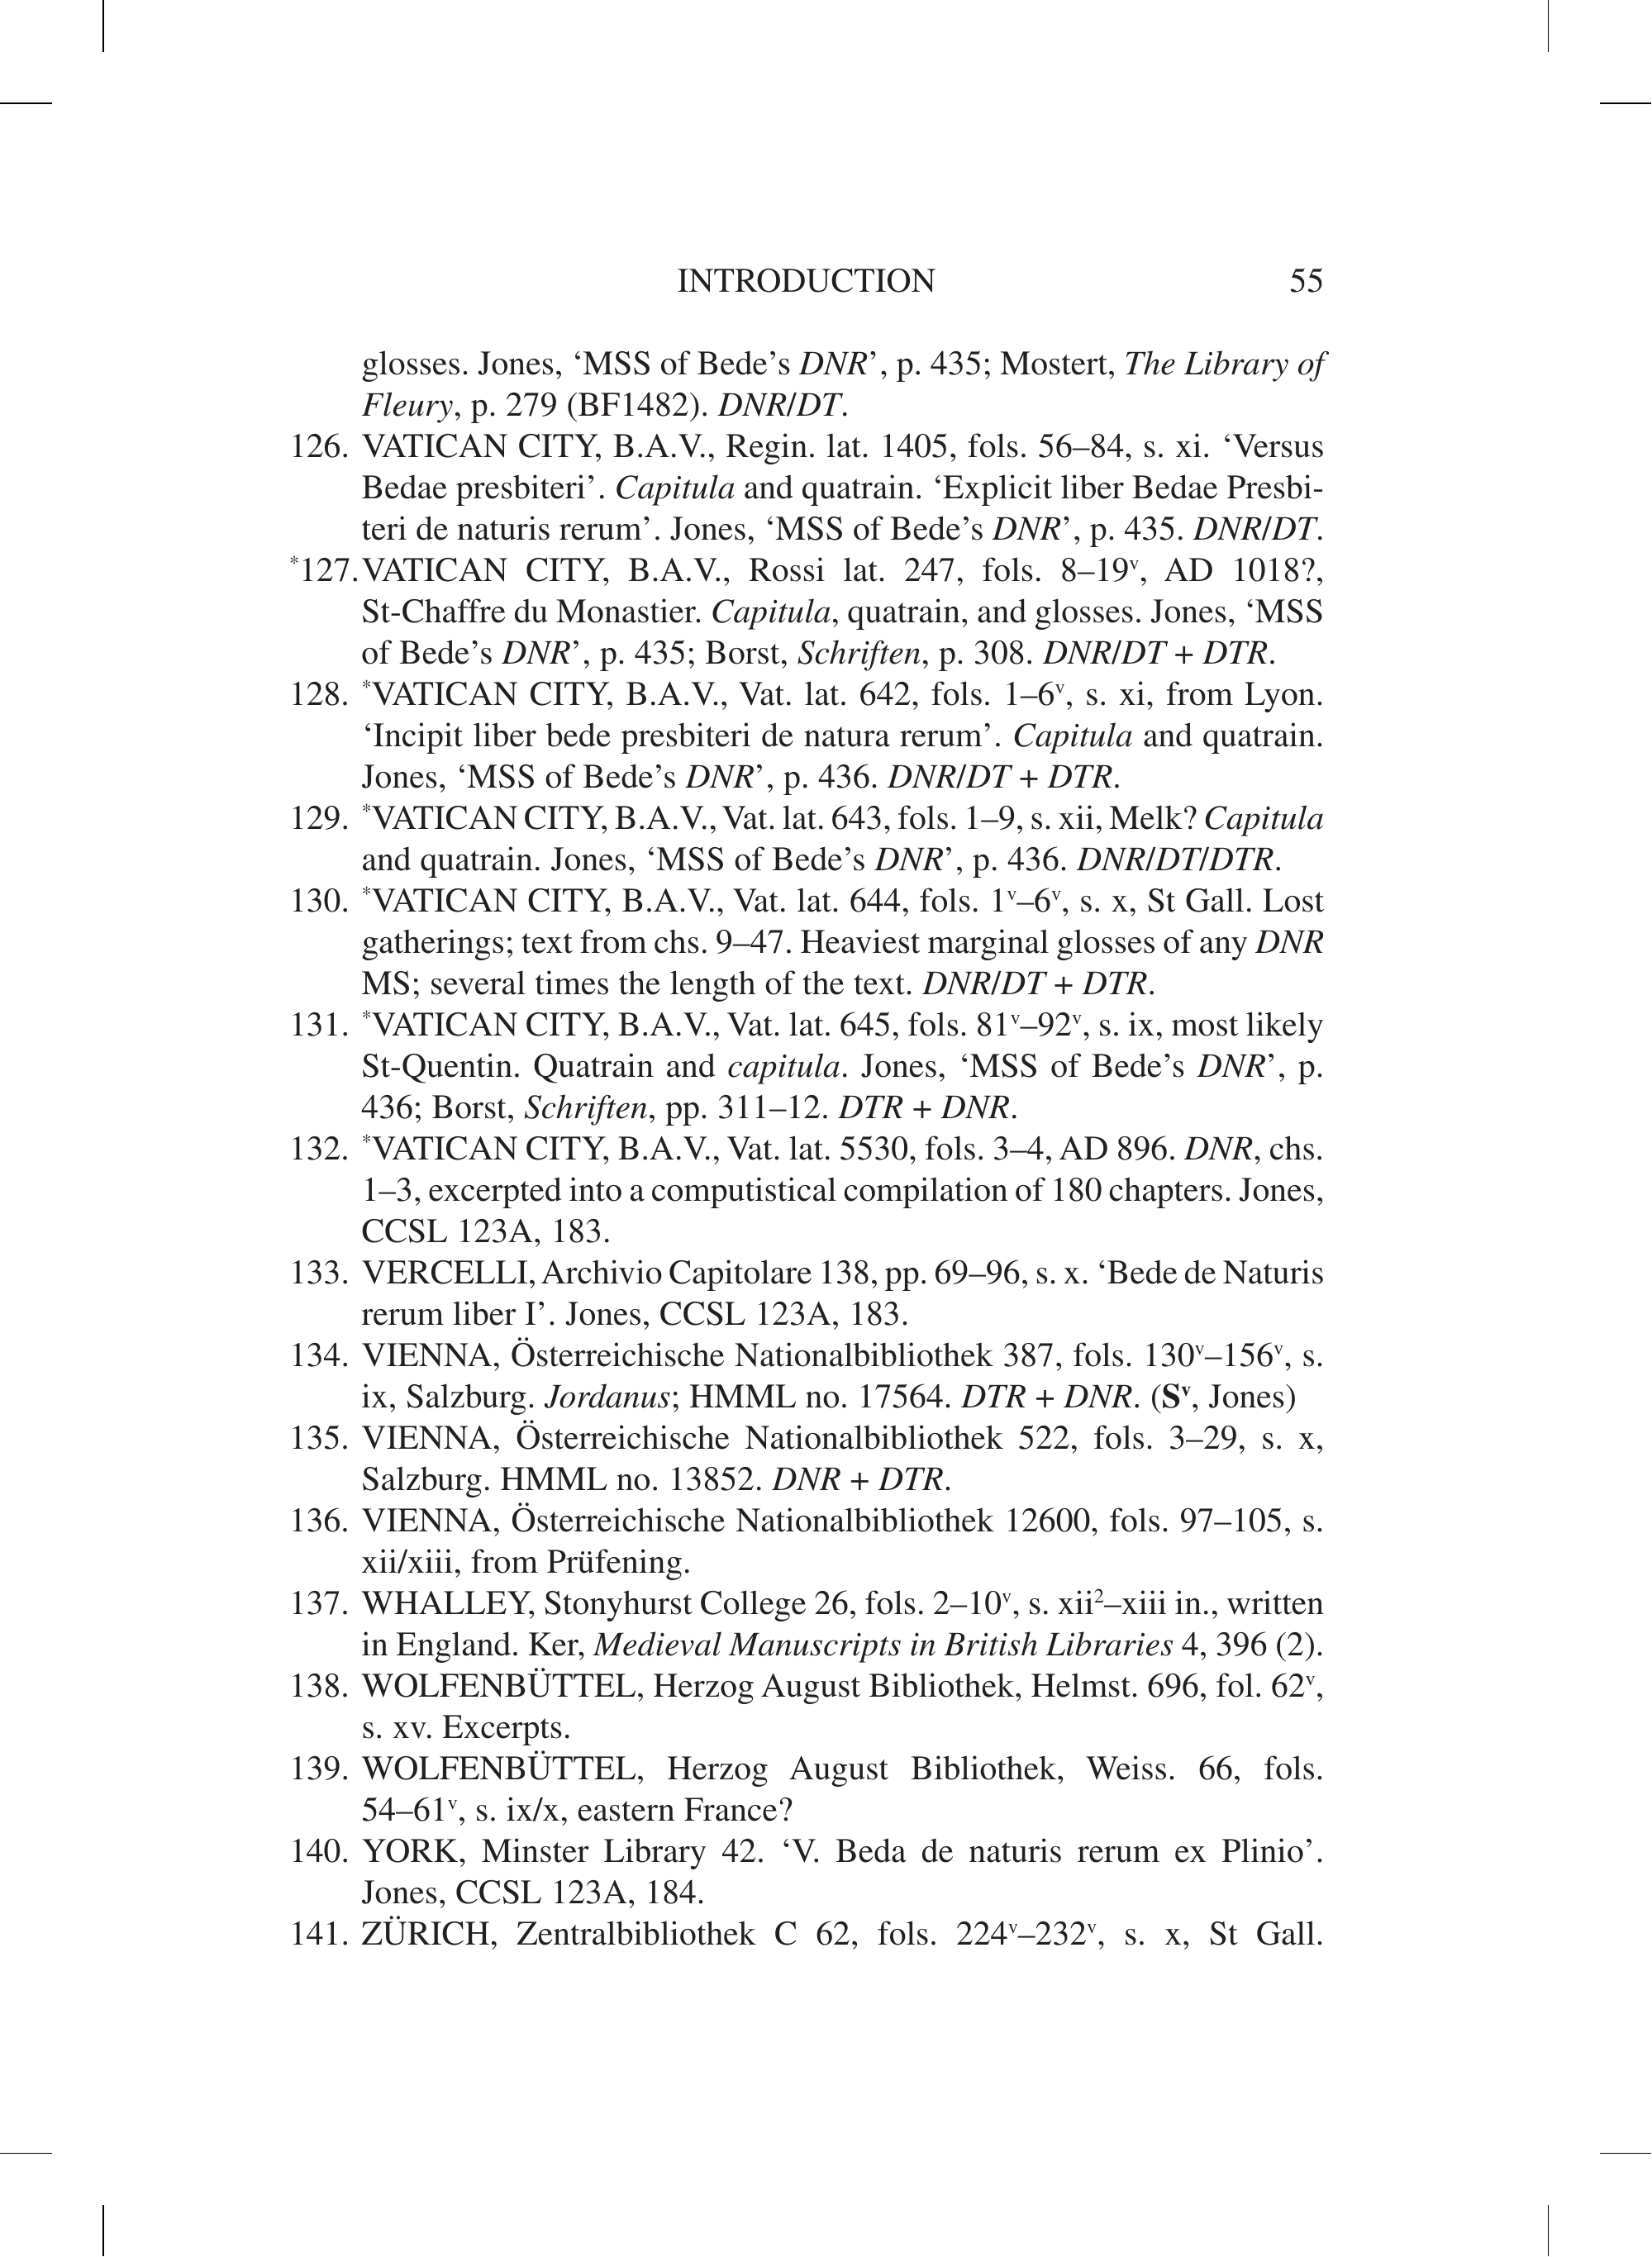 INTRODUCTION 55
glosses. Jones, ‘MSS of Bede’s DNR’, p. 435; Mostert, The Library of
Fleury, p. 279 (BF1482). DNR/DT.
126. VATICAN CITY, B.A.V., Regin. lat. 1405, fols. 56–84, s. xi. ‘Versus
Bedae presbiteri’. Capitula and quatrain. ‘Explicit liber Bedae Presbi-
teri de naturis rerum’. Jones, ‘MSS of Bede’s DNR’, p. 435. DNR/DT.
*127. VATICAN CITY, B.A.V., Rossi lat. 247, fols. 8–19ᵛ, AD 1018?,
St-Chaffre du Monastier. Capitula, quatrain, and glosses. Jones, ‘MSS
of Bede’s DNR’, p. 435; Borst, Schriften, p. 308. DNR/DT + DTR.
128. *VATICAN CITY, B.A.V., Vat. lat. 642, fols. 1–6ᵛ, s. xi, from Lyon.
‘Incipit liber bede presbiteri de natura rerum’. Capitula and quatrain.
Jones, ‘MSS of Bede’s DNR’, p. 436. DNR/DT + DTR.
129. *VATICAN CITY, B.A.V., Vat. lat. 643, fols. 1–9, s. xii, Melk? Capitula
and quatrain. Jones, ‘MSS of Bede’s DNR’, p. 436. DNR/DT/DTR.
130. *VATICAN CITY, B.A.V., Vat. lat. 644, fols. 1ᵛ–6ᵛ, s. x, St Gall. Lost
gatherings; text from chs. 9–47. Heaviest marginal glosses of any DNR
MS; several times the length of the text. DNR/DT + DTR.
131. *VATICAN CITY, B.A.V., Vat. lat. 645, fols. 81ᵛ–92ᵛ, s. ix, most likely
St-Quentin. Quatrain and capitula. Jones, ‘MSS of Bede’s DNR’, p.
436; Borst, Schriften, pp. 311–12. DTR + DNR.
132. *VATICAN CITY, B.A.V., Vat. lat. 5530, fols. 3–4, AD 896. DNR, chs.
1–3, excerpted into a computistical compilation of 180 chapters. Jones,
CCSL 123A, 183.
133. VERCELLI, Archivio Capitolare 138, pp. 69–96, s. x. ‘Bede de Naturis
rerum liber I’. Jones, CCSL 123A, 183.
134. VIENNA, Österreichische Nationalbibliothek 387, fols. 130ᵛ–156ᵛ, s.
ix, Salzburg. Jordanus; HMML no. 17564. DTR + DNR. (Sᵛ, Jones)
135. VIENNA, Österreichische Nationalbibliothek 522, fols. 3–29, s. x,
Salzburg. HMML no. 13852. DNR + DTR.
136. VIENNA, Österreichische Nationalbibliothek 12600, fols. 97–105, s.
xii/xiii, from Prüfening.
137. WHALLEY, Stonyhurst College 26, fols. 2–10ᵛ, s. xii²–xiii in., written
in England. Ker, Medieval Manuscripts in British Libraries 4, 396 (2).
138. WOLFENBÜTTEL, Herzog August Bibliothek, Helmst. 696, fol. 62ᵛ,
s. xv. Excerpts.
139. WOLFENBÜTTEL, Herzog August Bibliothek, Weiss. 66, fols.
54–61ᵛ, s. ix/x, eastern France?
140. YORK, Minster Library 42. ‘V. Beda de naturis rerum ex Plinio’.
Jones, CCSL 123A, 184.
141. ZÜRICH, Zentralbibliothek C 62, fols. 224ᵛ–232ᵛ, s. x, St Gall.